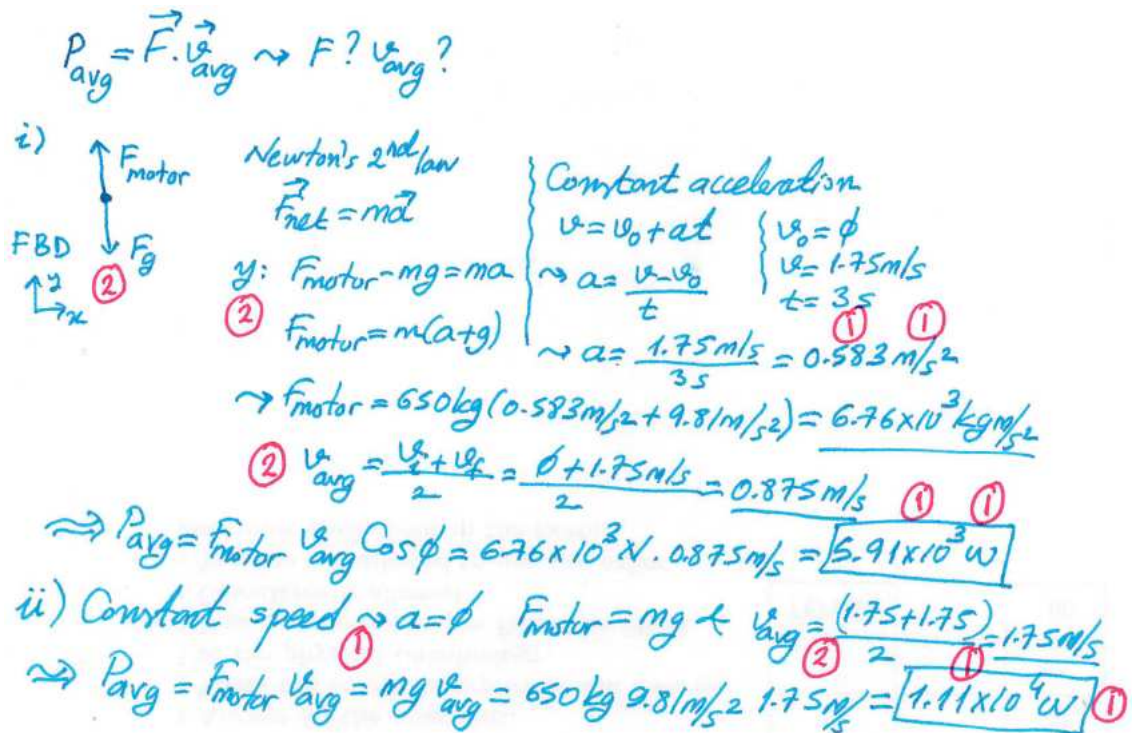 P_avg = F⃗ · v⃗_avg ⇝ F? v_avg?
i)
F_motor
F_g
FBD
y
x
②
Newton's 2nd law
F⃗_net = ma⃗
y: F_motor - mg = ma
②
F_motor = m(a+g)
Constant acceleration
v = v₀ + at
⇝ a = (v - v₀)/t
v₀ = ϕ
v = 1.75 m/s
t = 3s
① ①
⇝ a = 1.75 m/s / 3s = 0.583 m/s²
⇝ F_motor = 650 kg (0.583 m/s² + 9.81 m/s²) = 6.76×10³ kg m/s²
② v_avg = (v_i + v_f)/2 = (ϕ + 1.75 m/s)/2 = 0.875 m/s ① ①
⇒ P_avg = F_motor v_avg Cos ϕ = 6.76×10³ N. 0.875 m/s = 5.91×10³ W
ii) Constant speed ⇝ a = ϕ F_motor = mg & v_avg = (1.75+1.75)/2 = 1.75 m/s
① ② ①
⇒ P_avg = F_motor v_avg = mg v_avg = 650 kg 9.81 m/s² 1.75 m/s = 1.11×10⁴ W ①